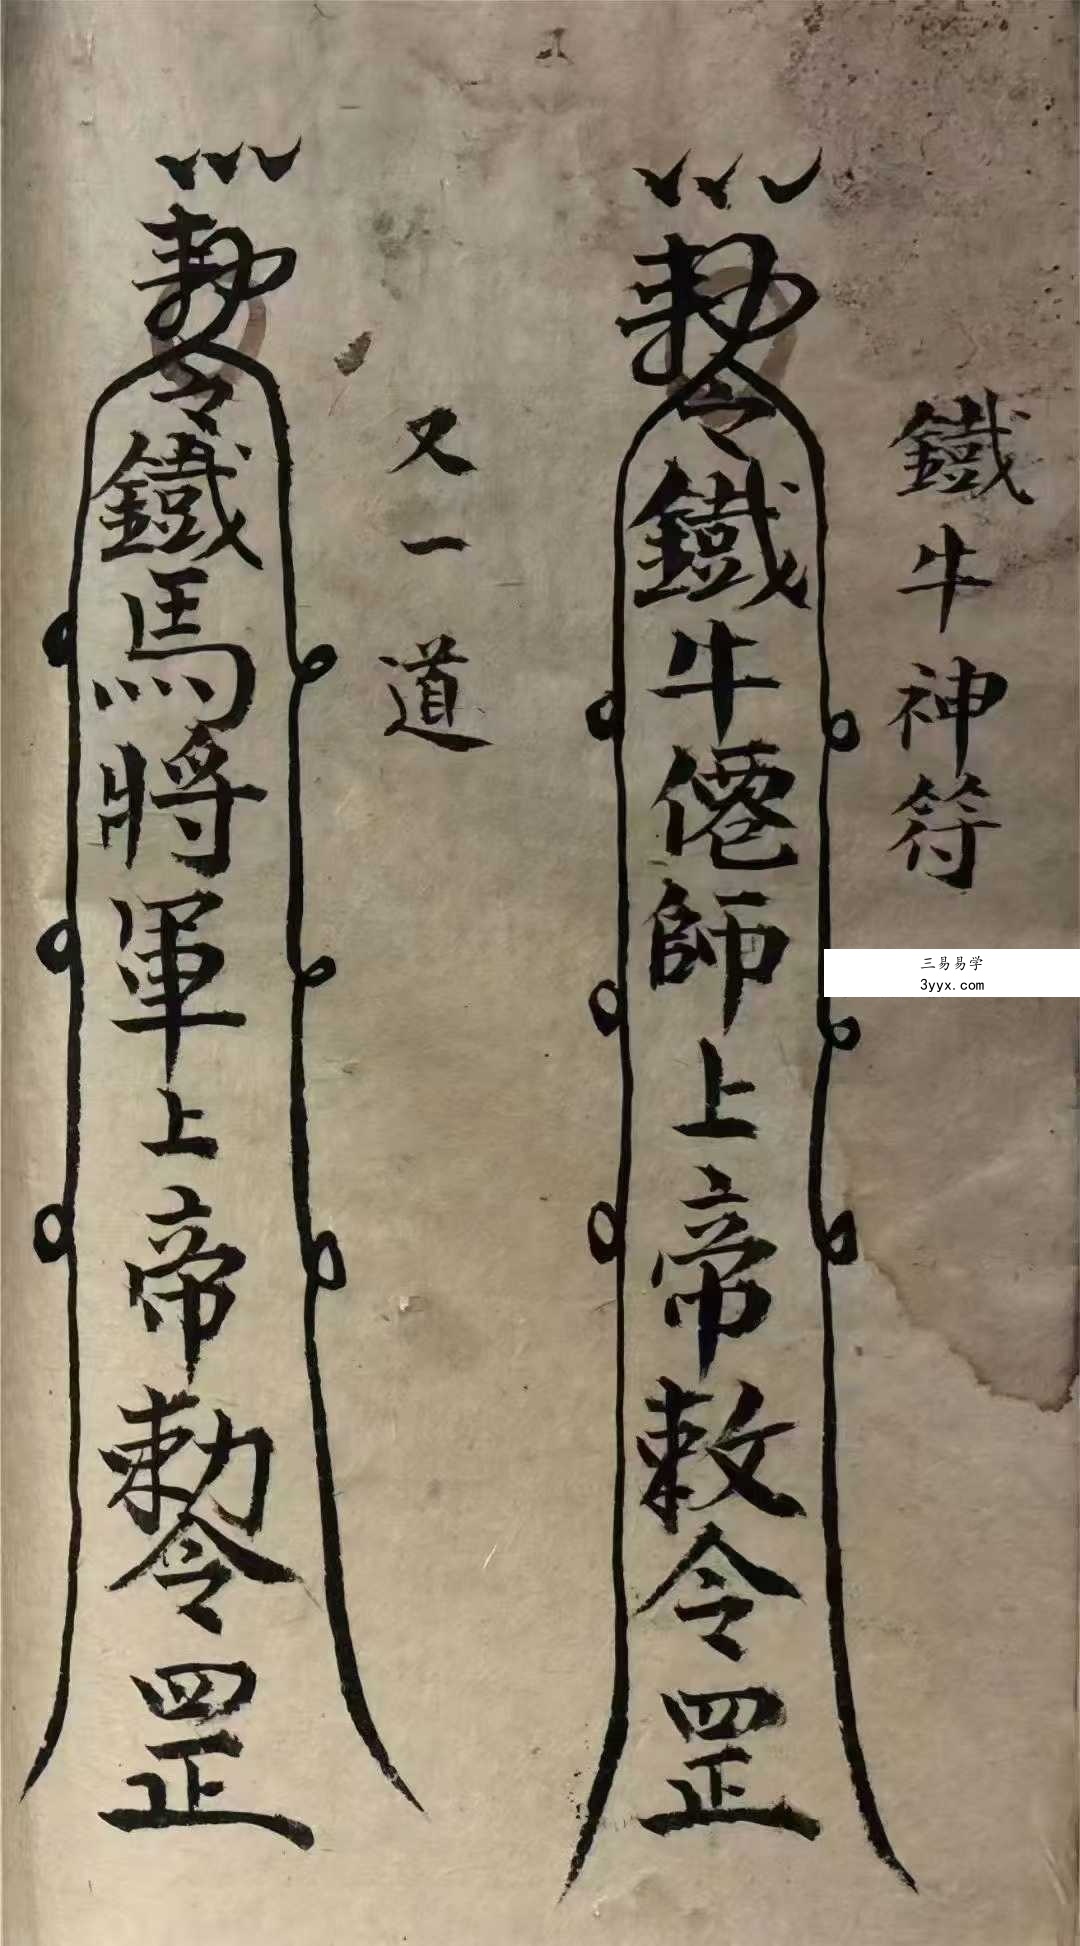 鐵牛神符
勅令鐵牛僊師上帝敕令罡
又一道
勅令鐵馬將軍上帝勅令罡
三易易学
3yyx.com